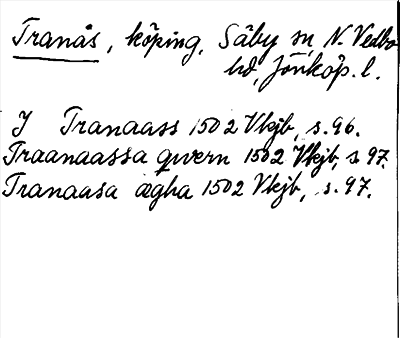 Tranås, köping, Säby sn, N. Vedbo
hd, Jönköp. l.
I Tranaass 1502 Vkjb, s. 96.
Traanaassa qwern 1502 Vkjb, s 97.
Tranaasa ægha 1502 Vkjb, s. 97.